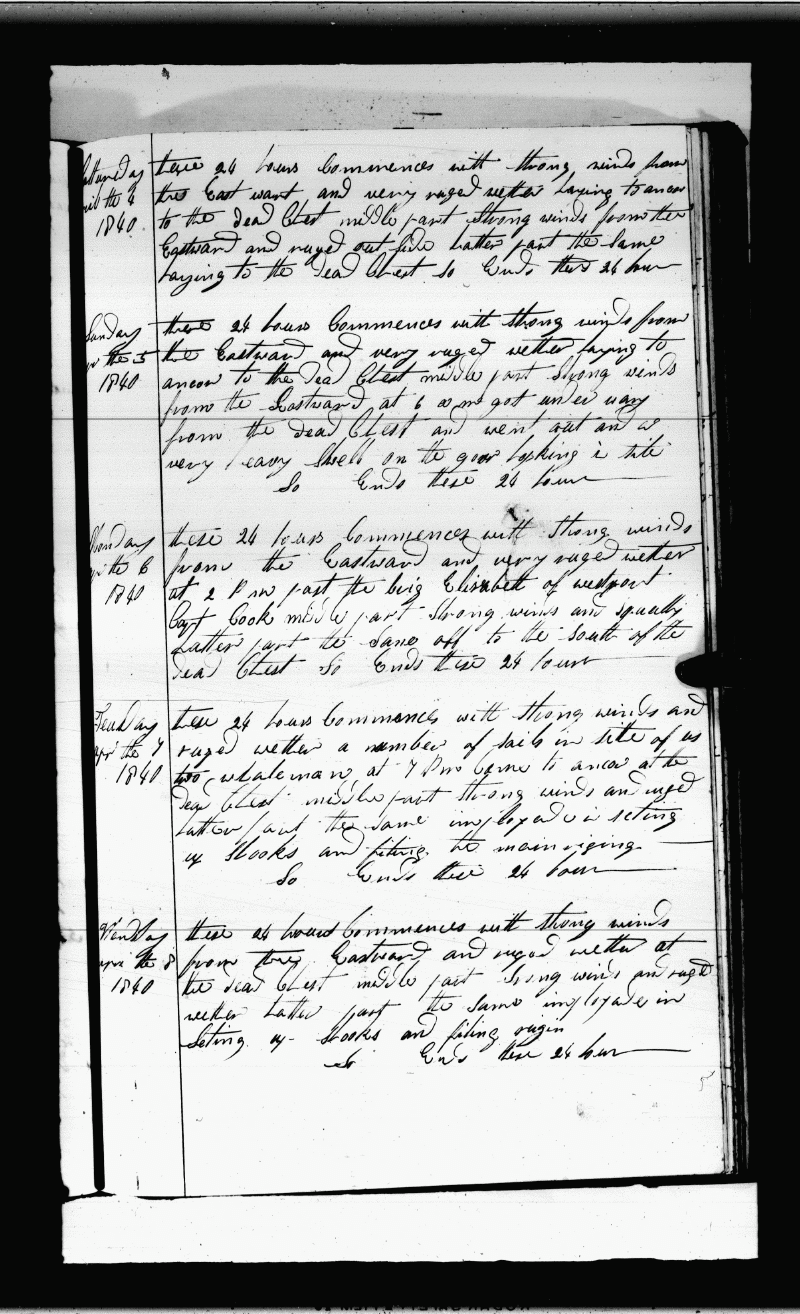 Satturday these 24 hours Commences with strong winds from
april the 4 the East ward and very ruged wether Laying to ancor
1840 to the Dead Chest middle part Strong winds from the
Eastward and ruged out side Latter part the Same
Laying to the Dead Chest So Ends these 24 hour
Sunday these 24 hours Commences with strong winds from
apr the 5 the Eastward and very ruged wether laying to
1840 ancor to the Dead Chest middle part Strong winds
from the Eastward at 6 am got under way
from the Dead Chest and went out and a
very heavy Swell on the looking in site
So Ends these 24 hour
Monday these 24 hours Commences with Strong winds
apr the 6 from the Eastward and very ruged wether
1840 at 2 Pm past the brig Elisabeth of westport
Capt Cook middle part Strong winds and squally
Latter part the Same off to the South of the
Dead Chest So Ends these 24 hour
Teusday these 24 hours Commences with strong winds and
apr the 7 ruged wether a number of sails in site of us
1840 two whaleman at 7 Pm Came to ancor at the
Dead Chest middle part strong winds and ruged
Latter part the Same imployed in seting
up Hooks and fiting the main riging
So Ends these 24 hour
Wendsday these 24 hours Commences with strong winds
apri the 8 from they Eastward and ruged wether at
1840 the Dead Chest middle part Strong winds and ruged
wether Latter part the Same imployed in
Seting up Hooks and fiting rigin
So Ends these 24 hour